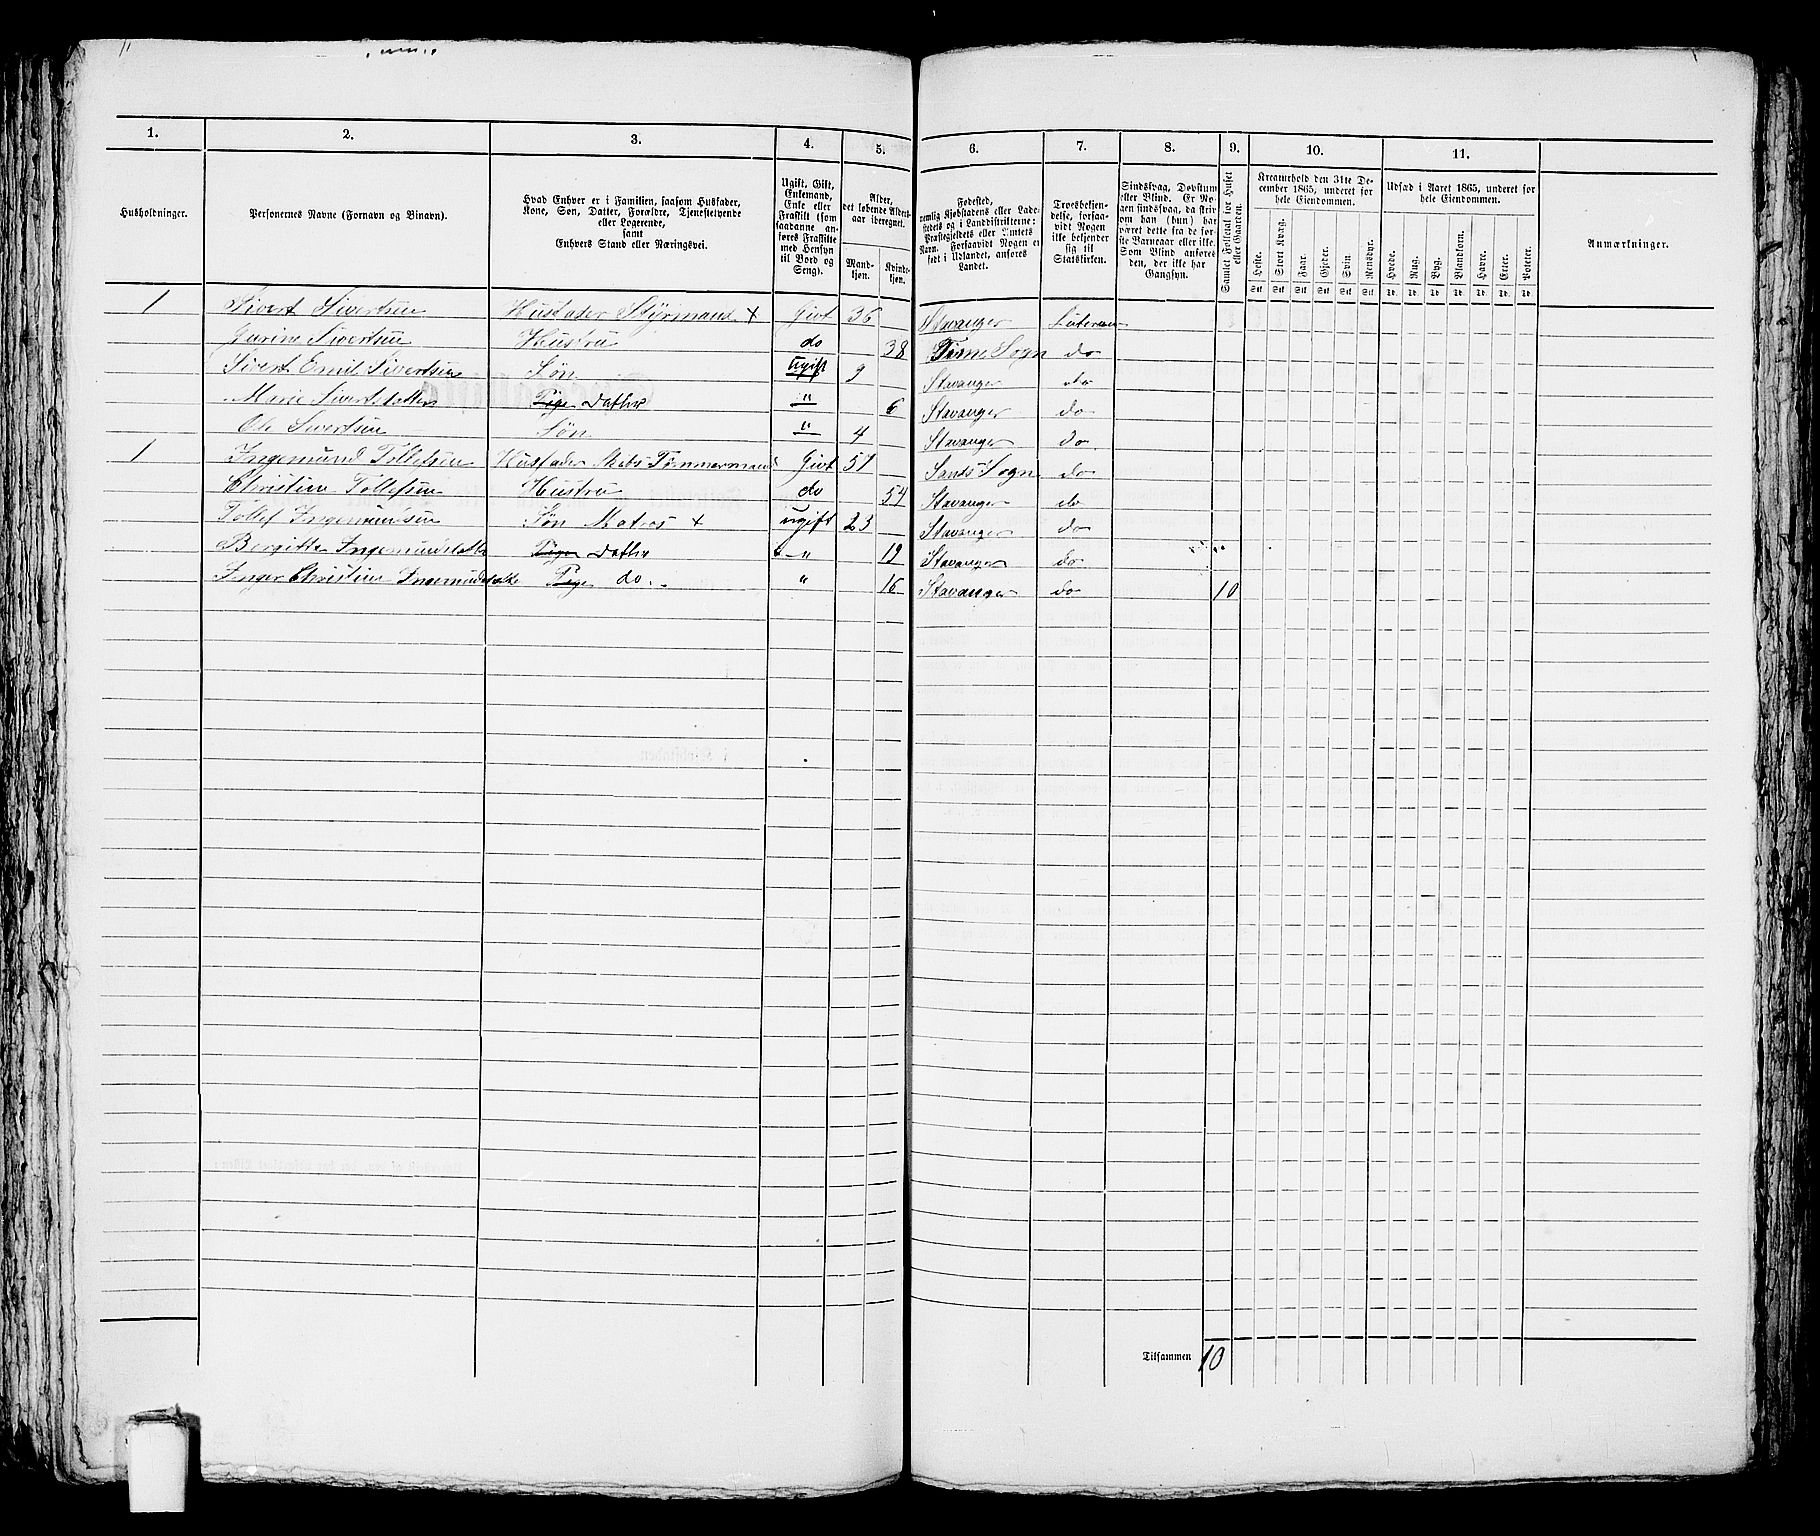 1. 2. 3. 4. 5. 6. 7. 8. 9. 10. 11.
Husholdninger.
Personernes Navne (Fornavn og Binavn).
Hvad Enhver er i Familien, saasom Husfader,
Kone, Søn, Datter, Forældre, Tjenestetyende
eller Logerende,
samt
Enhvers Stand eller Næringsvei.
Ugift, Gift,
Enkemand,
Enke eller
Fraskilt (som
saadanne an-
føres Fraskilte
med Hensyn
til Bord og
Seng).
Alder,
det løbende Alders-
aar iberegnet.
Mand-
kjøn.
Kvinde-
kjøn.
Fødested,
nemlig Kjøbstadens eller Lade-
stedets og i Landdistrikterne:
Præstegjeldets eller Amtets
Navn. Forsaavidt Nogen er
født i Udlandet, anføres
Landet.
Troesbekjen-
delse, forsaa-
vidt Nogen
ikke bekjender
sig til
Statskirken.
Sindssvag, Døvstum
eller Blind. Er No-
gen sindssvag, da skriv
om han (hun) har
været dette fra de før-
ste Barneaar eller ikke.
Som Blind anføres
den, der ikke har
Gangsyn.
Samlet Folketal for Huset
eller Gaarden.
Kreaturhold den 31te De-
cember 1865, underet for
hele Eiendommen.
Heste. Stort Kvæg. Faar. Gjeder. Svin. Rensdyr.
Stk Stk Stk Stk Stk Stk
Udsæd i Aaret 1865, underet for
hele Eiendommen.
Hvede. Rug. Byg. Blandkorn. Havre. Erter. Poteter.
Td. Td. Td. Td. Td. Td. Td.
Anmærkninger.
1 Sivert Sivertsen Husfader Styrmand + Givt 36 Stavanger
Gurine Sivertsen Hustru do 38 Sogn do
Sivert Emil Sivertsen Søn Ugift 9 Stavanger do
Marie Sivertsdatter Pige Datter " 6 Stavanger do
Ole Sivertsen Søn " 4 Stavanger do
1 Ingemund Tollefsen Husfader Tømmermand Givt 57 Sands Sogn do
Christine Tollefsen Hustru do 54 Stavanger do
Tollef Ingemundsen Søn Matros + ugift 23 Stavanger do
Bergitte Ingemundsdatter Pige Datter " 19 Stavanger do
Inger Christine Ingemundsdatter Pige do. " 16 Stavanger do 10
Tilsammen 10